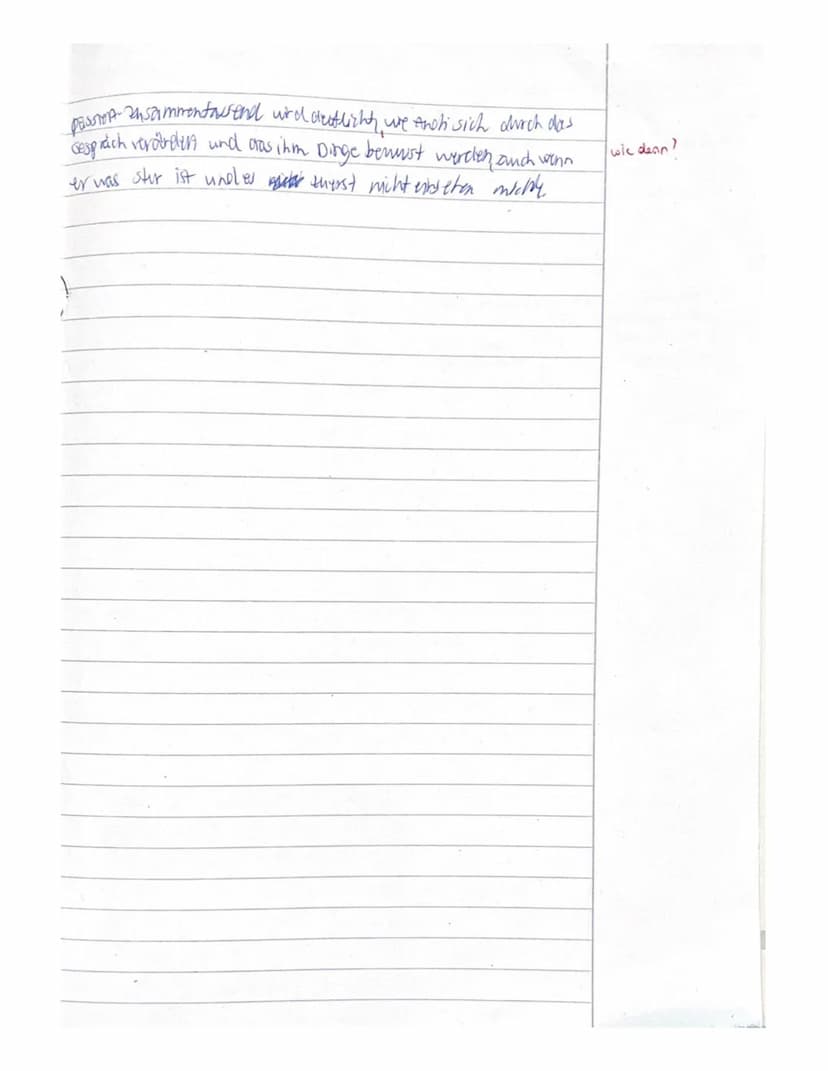 passiert. Zusammenfassend wird deutlich, wie Andi sich durch das
Gespräch verändert und das ihm Dinge bewusst werden, auch wenn
er was stur ist und es zuerst nicht einsehen möchte
wie denn?